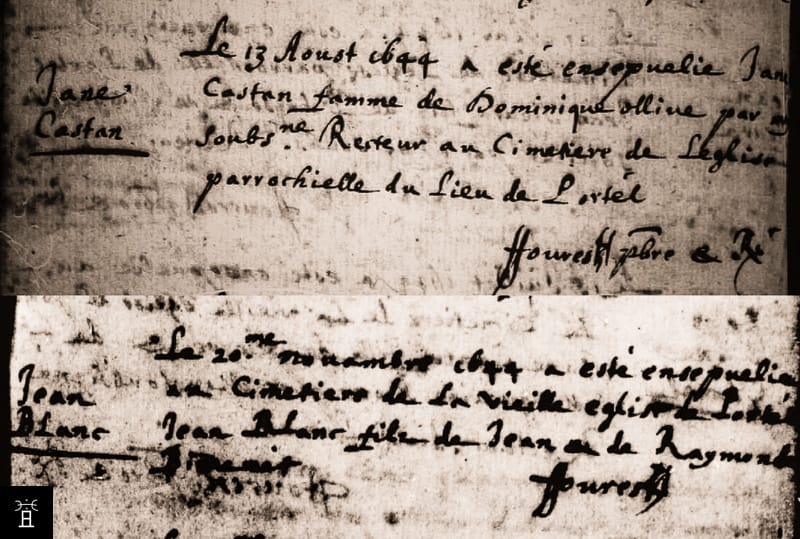 Jane
Castan
Le 13 Aoust 1644 a esté ensepuelie Jane
Castan famme de Dominique ollive par
soubs.ne Recteur au Cimetiere de Leglise
parrochielle du Lieu de Lortét
ffourest pbre & Rr
Jean
Blanc
Le 20.me nouambre 1644 a esté ensepuelie
au Cimetiere de La vieille eglise de Lortét
Jean Blanc filz de Jean & de Raymonde
ffourest